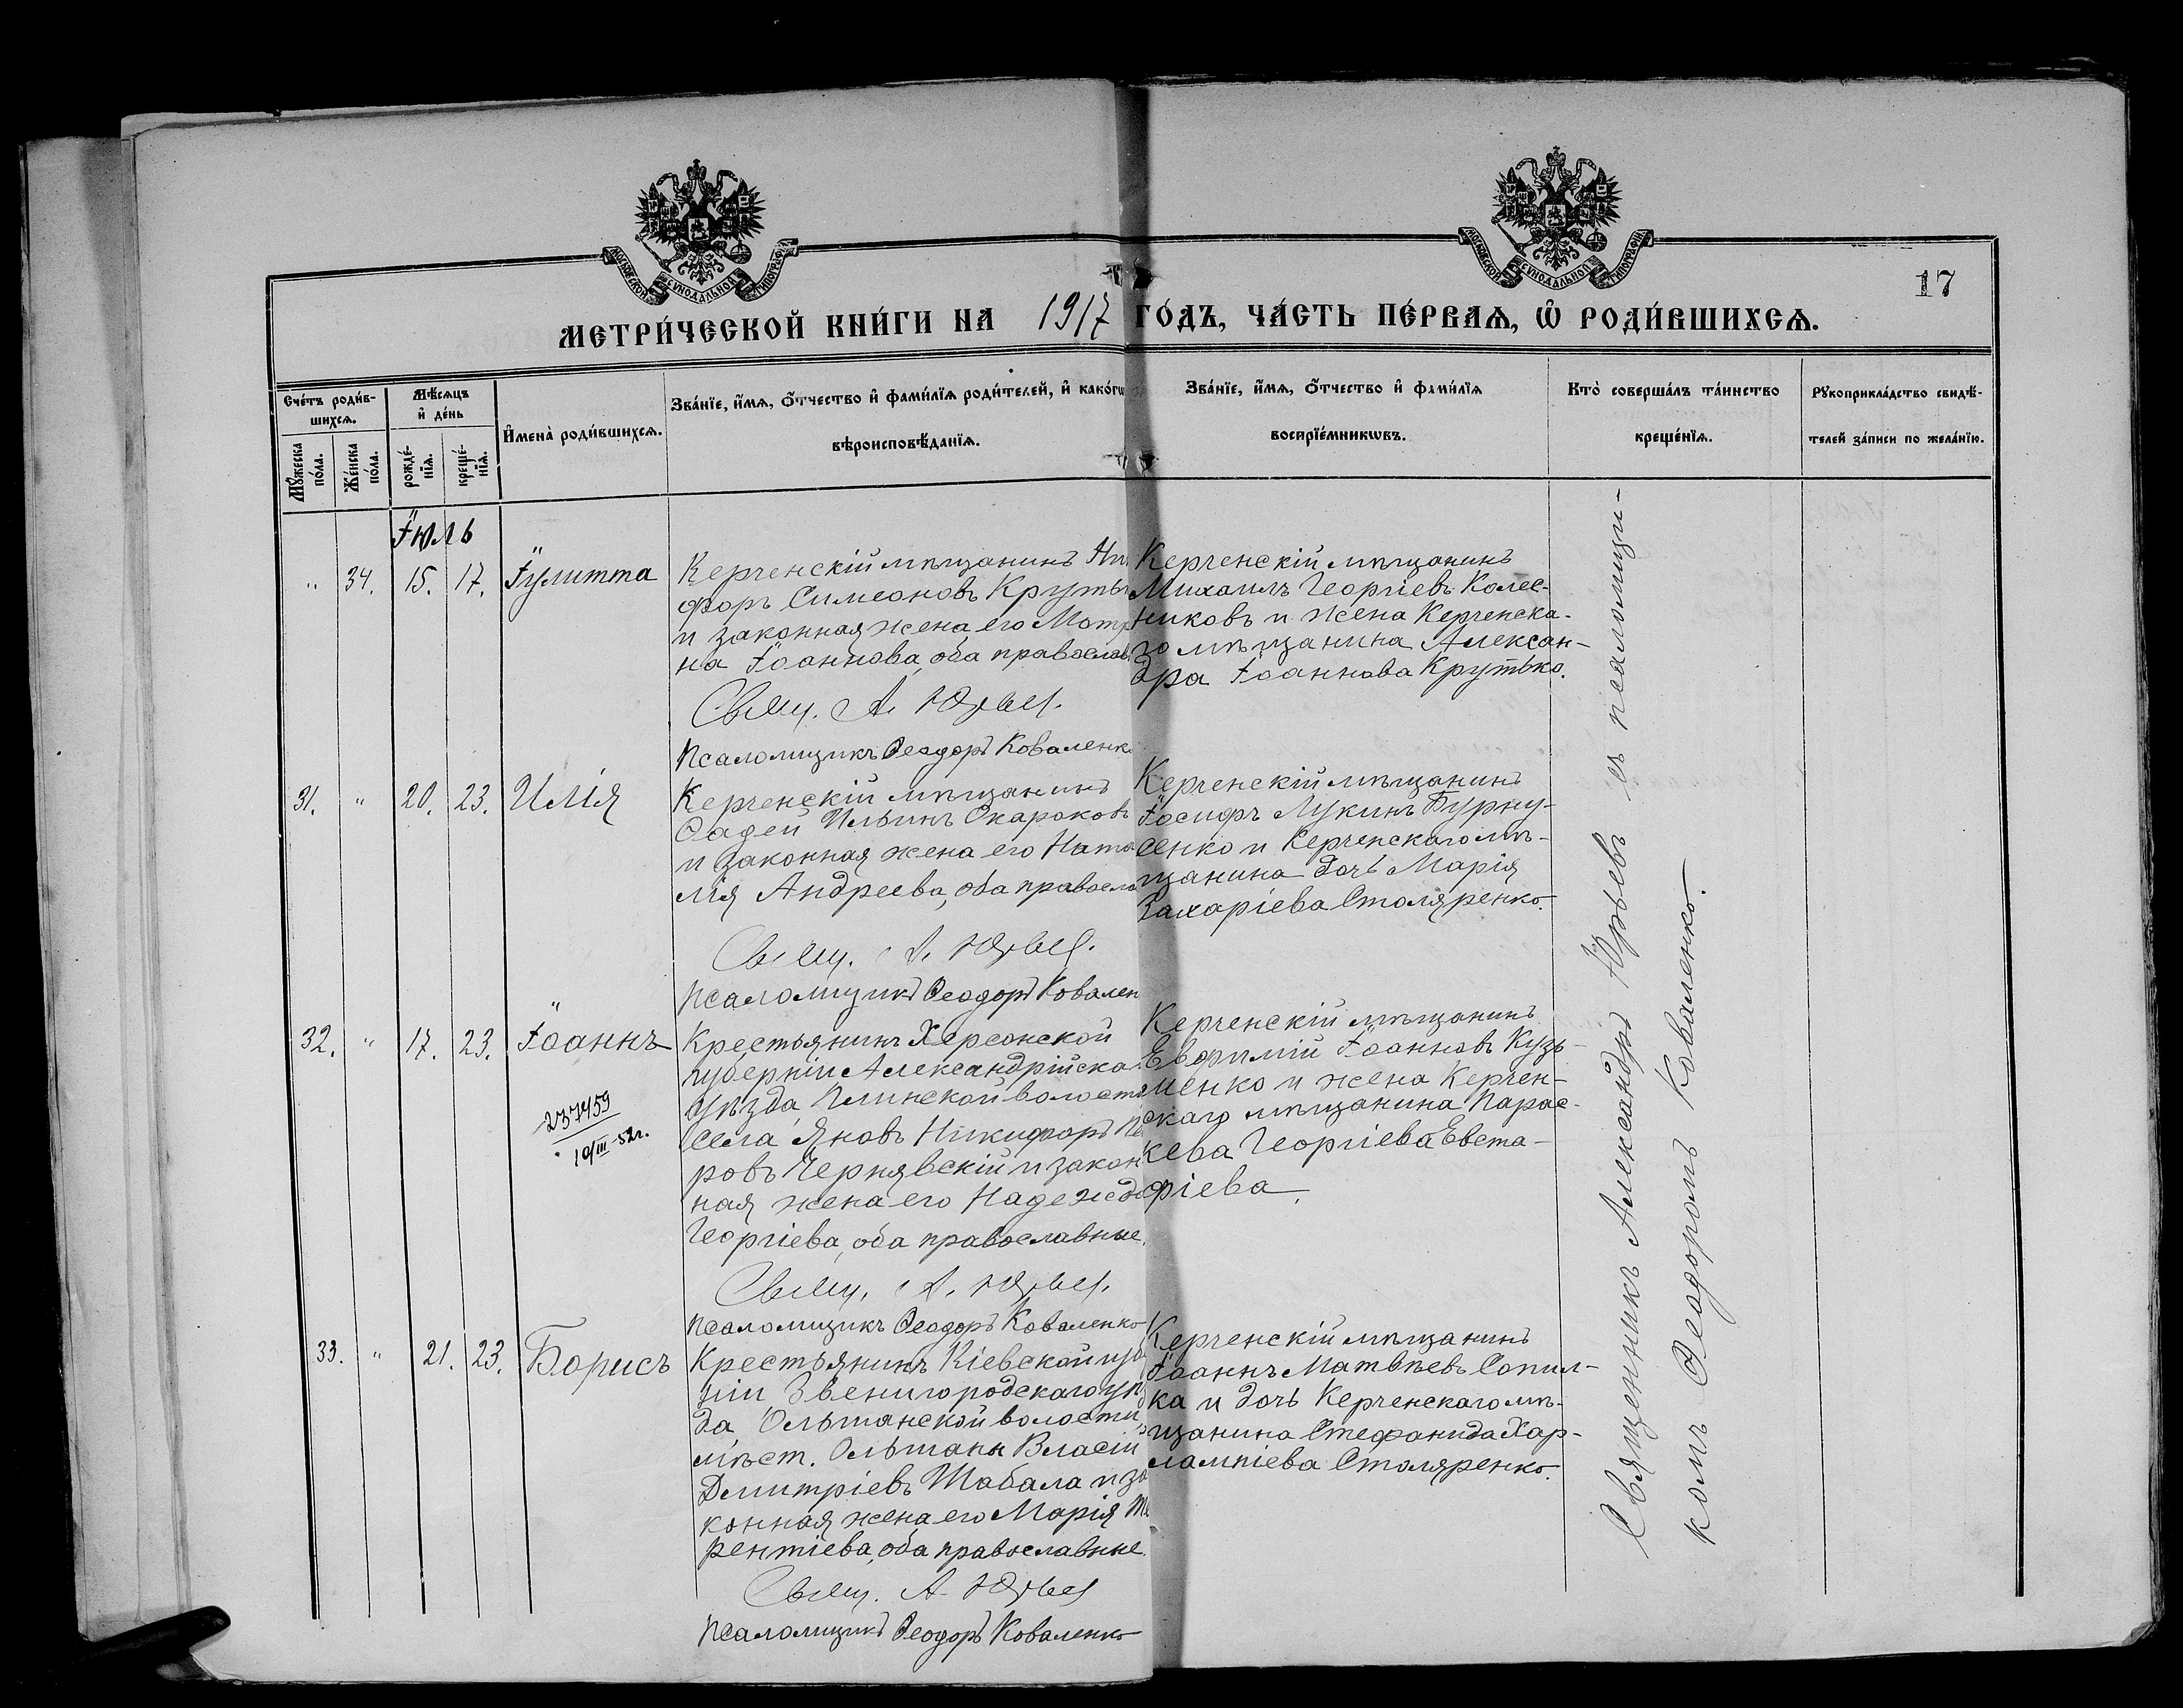 МОСКОВСКОЙ СУНОДАЛЬНОЙ ТИПОГРАФІИ
МОСКОВСКОЙ СУНОДАЛЬНОЙ ТИПОГРАФІИ
17
МЕТРИ́ЧЕСКОЙ КНИ́ГИ НА 1917 ГО́ДЪ, ЧА́СТЬ ПЕ́РВАѦ, Ѡ РОДИ́ВШИХСѦ.
Сче́тъ роди́в-
шихсѧ.
Мꙋ́жеска
по́ла.
Же́нска
по́ла.
Мѣ́сѧцъ
и҆ де́нь
рожде́-
нїѧ.
креще́-
нїѧ.
И҆мена̀ роди́вшихсѧ.
Зва́нїе, и҆́мѧ, ѻ҆́тчество и҆ фами́лїѧ роди́телей, и҆ како́гѡ
вѣроисповѣ́данїѧ.
Зва́нїе, и҆́мѧ, ѻ҆́тчество и҆ фами́лїѧ
воспрїе́мникѡвъ.
Кто̀ соверша́лъ та́инство
креще́нїѧ.
Рꙋкоприкла́дство свидѣ́-
телей за́писи по жела́нїю.
Іюль
" 34. 15. 17. Іулитта
Керченскій мѣщанинъ Ни
форъ Симеоновъ Круть
и законная жена его Мотр
на Іоаннова, оба православ
Свящ. А. Юрьев.
Псаломщикъ Ѳеодоръ Коваленк
Керченскій мѣщанинъ
Михаилъ Георгіевъ Колес-
никовъ и жена Керченска-
го мѣщанина Алексан-
дра Іоаннова Крутько.
31. " 20. 23. Илія
Керченскій мѣщанинъ
Ѳадей Ильинъ Скароковъ
и законная жена его Ната
лія Андреева, оба правосла
Свящ. А. Юрьев.
Псаломщикъ Ѳеодоръ Ковален
Керченскій мѣщанинъ
Іосифъ Лукинъ Бурну-
сенко и Керченскаго мѣ-
щанина дочь Марія
Захаріева Столяренко.
32. " 17. 23. Іоаннъ
237459
10/III-52г.
Крестьянинъ Херсонской
губерніи Александрійска
уѣзда, Глинской волости
села Яновъ Никифоръ Пе
ровъ Чернявскій и закон
ная жена его Надежда
Георгіева, оба православные.
Свящ. А. Юрьев.
Псаломщикъ Ѳеодоръ Коваленко
Керченскій мѣщанинъ
Евфимій Іоанновъ Кузь-
менко и жена Керчен-
скаго мѣщанина Парас-
кева Георгіева Евста-
фіева.
33. " 21. 23. Борисъ
Крестьянинъ Кіевской гу
ніи Звенигородскаго уѣ
да, Ольшанской волости,
мѣст. Ольшаны Власій
Дмитріевъ Шабала и за
конная жена его Марія Те
рентіева, оба православные.
Свящ. А. Юрьев
Псаломщикъ Ѳеодоръ Коваленко
Керченскій мѣщанинъ
Іоаннъ Матвѣевъ Сопил-
ка и дочь Керченскаго мѣ-
щанина Стефанида Хар-
лампіева Столяренко.
Священникъ Александръ Юрьевъ съ псаломщи-
комъ Ѳеодоромъ Коваленко.